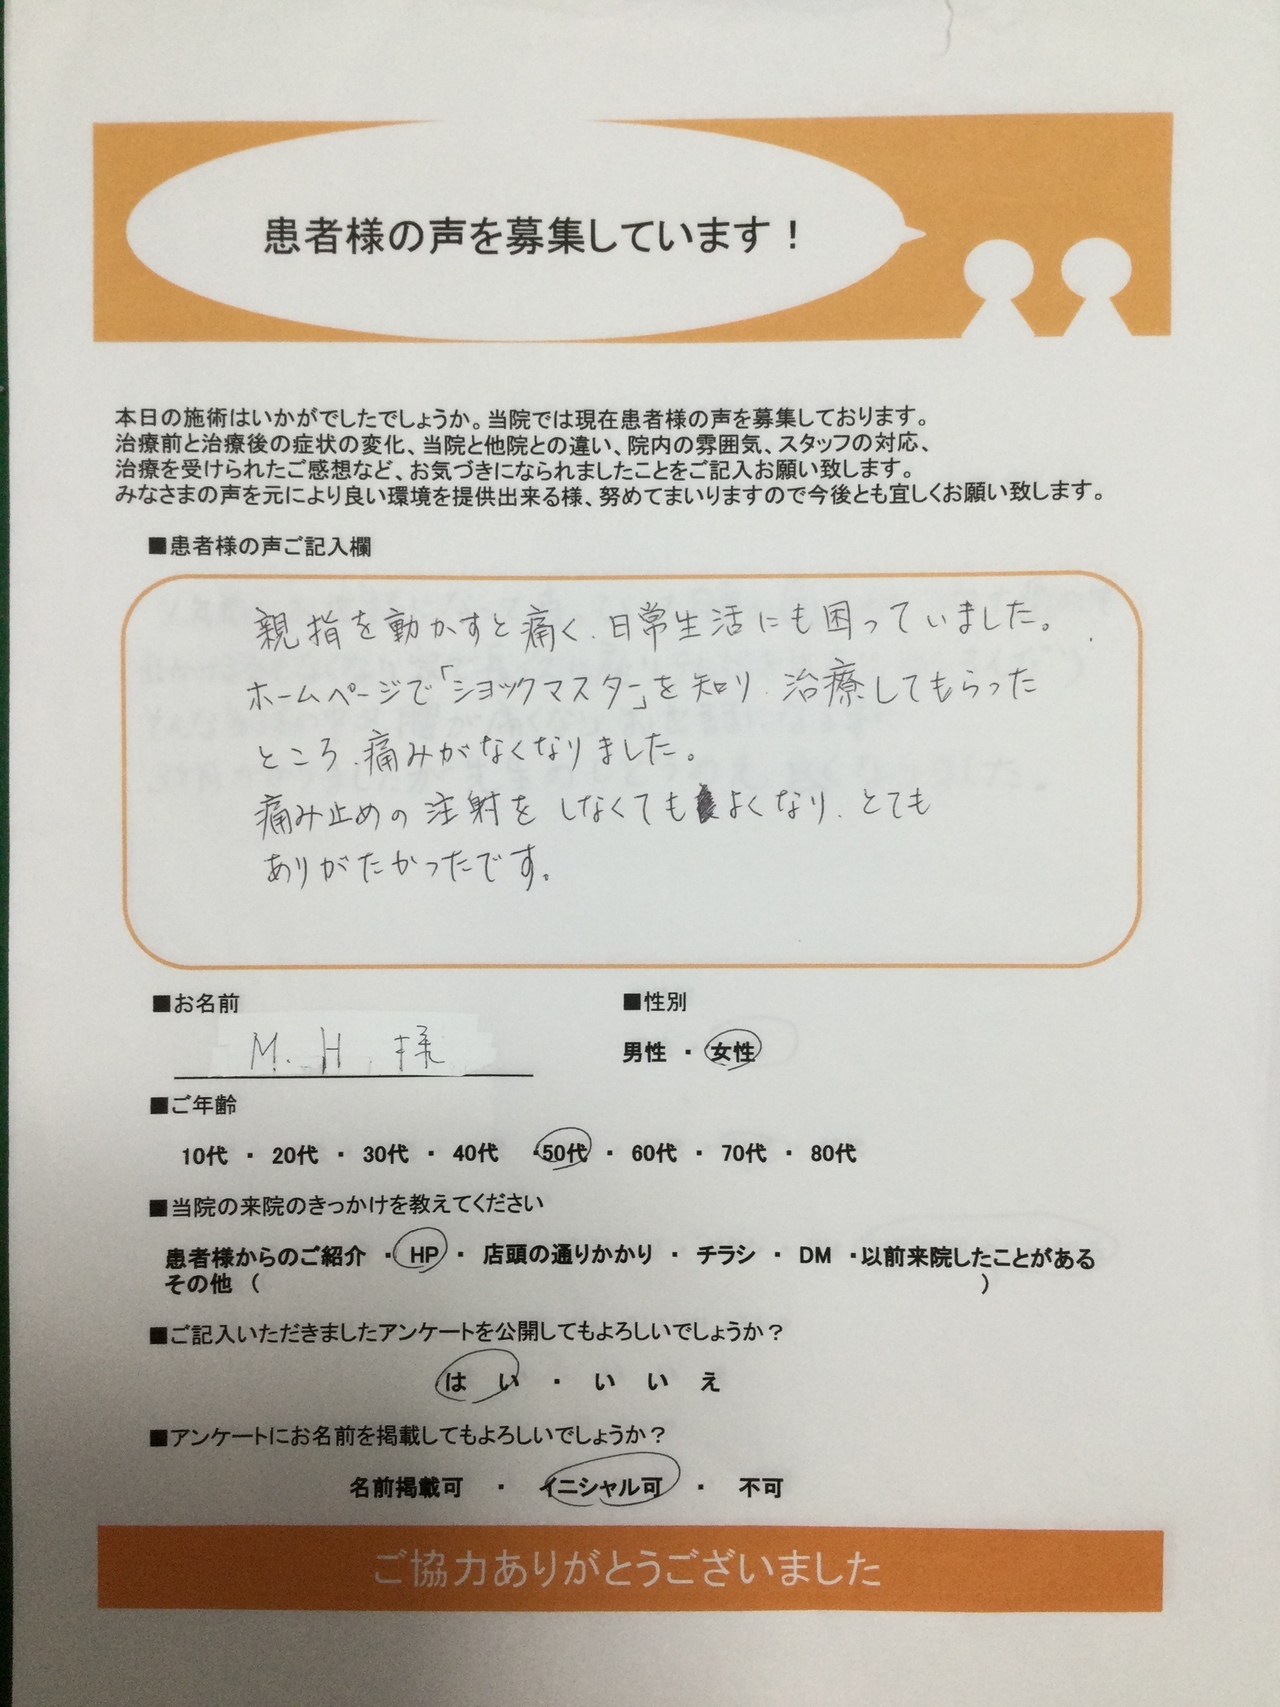 患者様の声を募集しています！
本日の施術はいかがでしたでしょうか。当院では現在患者様の声を募集しております。
治療前と治療後の症状の変化、当院と他院との違い、院内の雰囲気、スタッフの対応、
治療を受けられたご感想など、お気づきになられましたことをご記入お願い致します。
みなさまの声を元により良い環境を提供出来る様、努めてまいりますので今後とも宜しくお願い致します。
■患者様の声ご記入欄
親指を動かすと痛く、日常生活にも困っていました。
ホームページで「ショックマスター」を知り、治療してもらった
ところ、痛みがなくなりました。
痛み止めの注射をしなくてもよくなり、とても
ありがたかったです。
■お名前 ■性別
M.H.様 男性 ・ 女性
■ご年齢
10代 ・ 20代 ・ 30代 ・ 40代 ・50代 ・ 60代 ・ 70代 ・ 80代
■当院の来院のきっかけを教えてください
患者様からのご紹介 ・ HP ・ 店頭の通りかかり ・ チラシ ・ DM ・以前来院したことがある
その他 （ ）
■ご記入いただきましたアンケートを公開してもよろしいでしょうか？
はい ・ いいえ
■アンケートにお名前を掲載してもよろしいでしょうか？
名前掲載可 ・ イニシャル可 ・ 不可
ご協力ありがとうございました